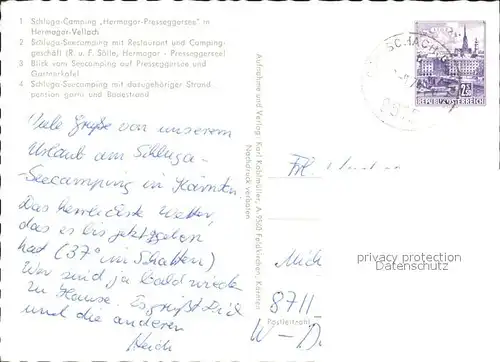 1 Schluga-Camping „Hermagor-Presseggersee" in
Hermagor-Vellach
2 Schluga-Seecamping mit Restaurant und Camping-
geschäft (R. u. F. Sölle, Hermagor - Presseggersee)
3 Blick vom Seecamping auf Presseggersee und
Gartnerkofel
4 Schluga-Seecamping mit dazugehöriger Strand
pension garni und Badestrand
Viele Grüße von unserem
Urlaub am Schluga-
Seecamping in Kärnten.
Das herrlichste Wetter,
das es bis jetzt gegeben
hat (37° im Schatten)
Wir sind ja bald wieder
zu Hause. Es grüßt Dich
und die anderen
Heidi
Aufnahme und Verlag: Karl Kohlmüller, A-9560 Feldkirchen, Kärnten
Nachdruck verboten
REPUBLIK ÖSTERREICH
Frl.
privacy protection
Datenschutz
Mich
8711
Postleitzahl
W-D